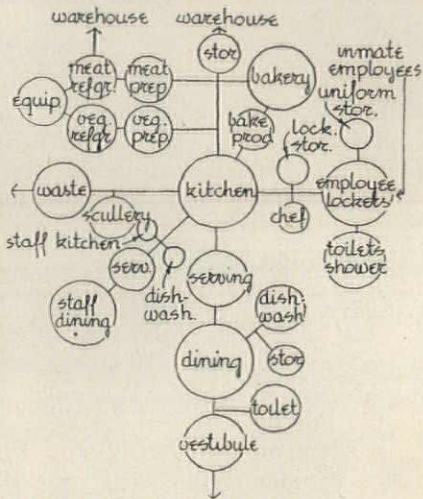 warehouse
warehouse
stor
meat
refgr.
meat
prep
bakery
inmate
employees
uniform
stor.
equip.
veg.
refgr
veg.
prep
bake
prod
lock.
stor.
waste
kitchen
employee
lockers
scullery
chef
staff kitchen
serv.
toilets
shower
serving
dish-
wash.
staff
dining
dish-
wash
dining
stor
toilet
vestibule